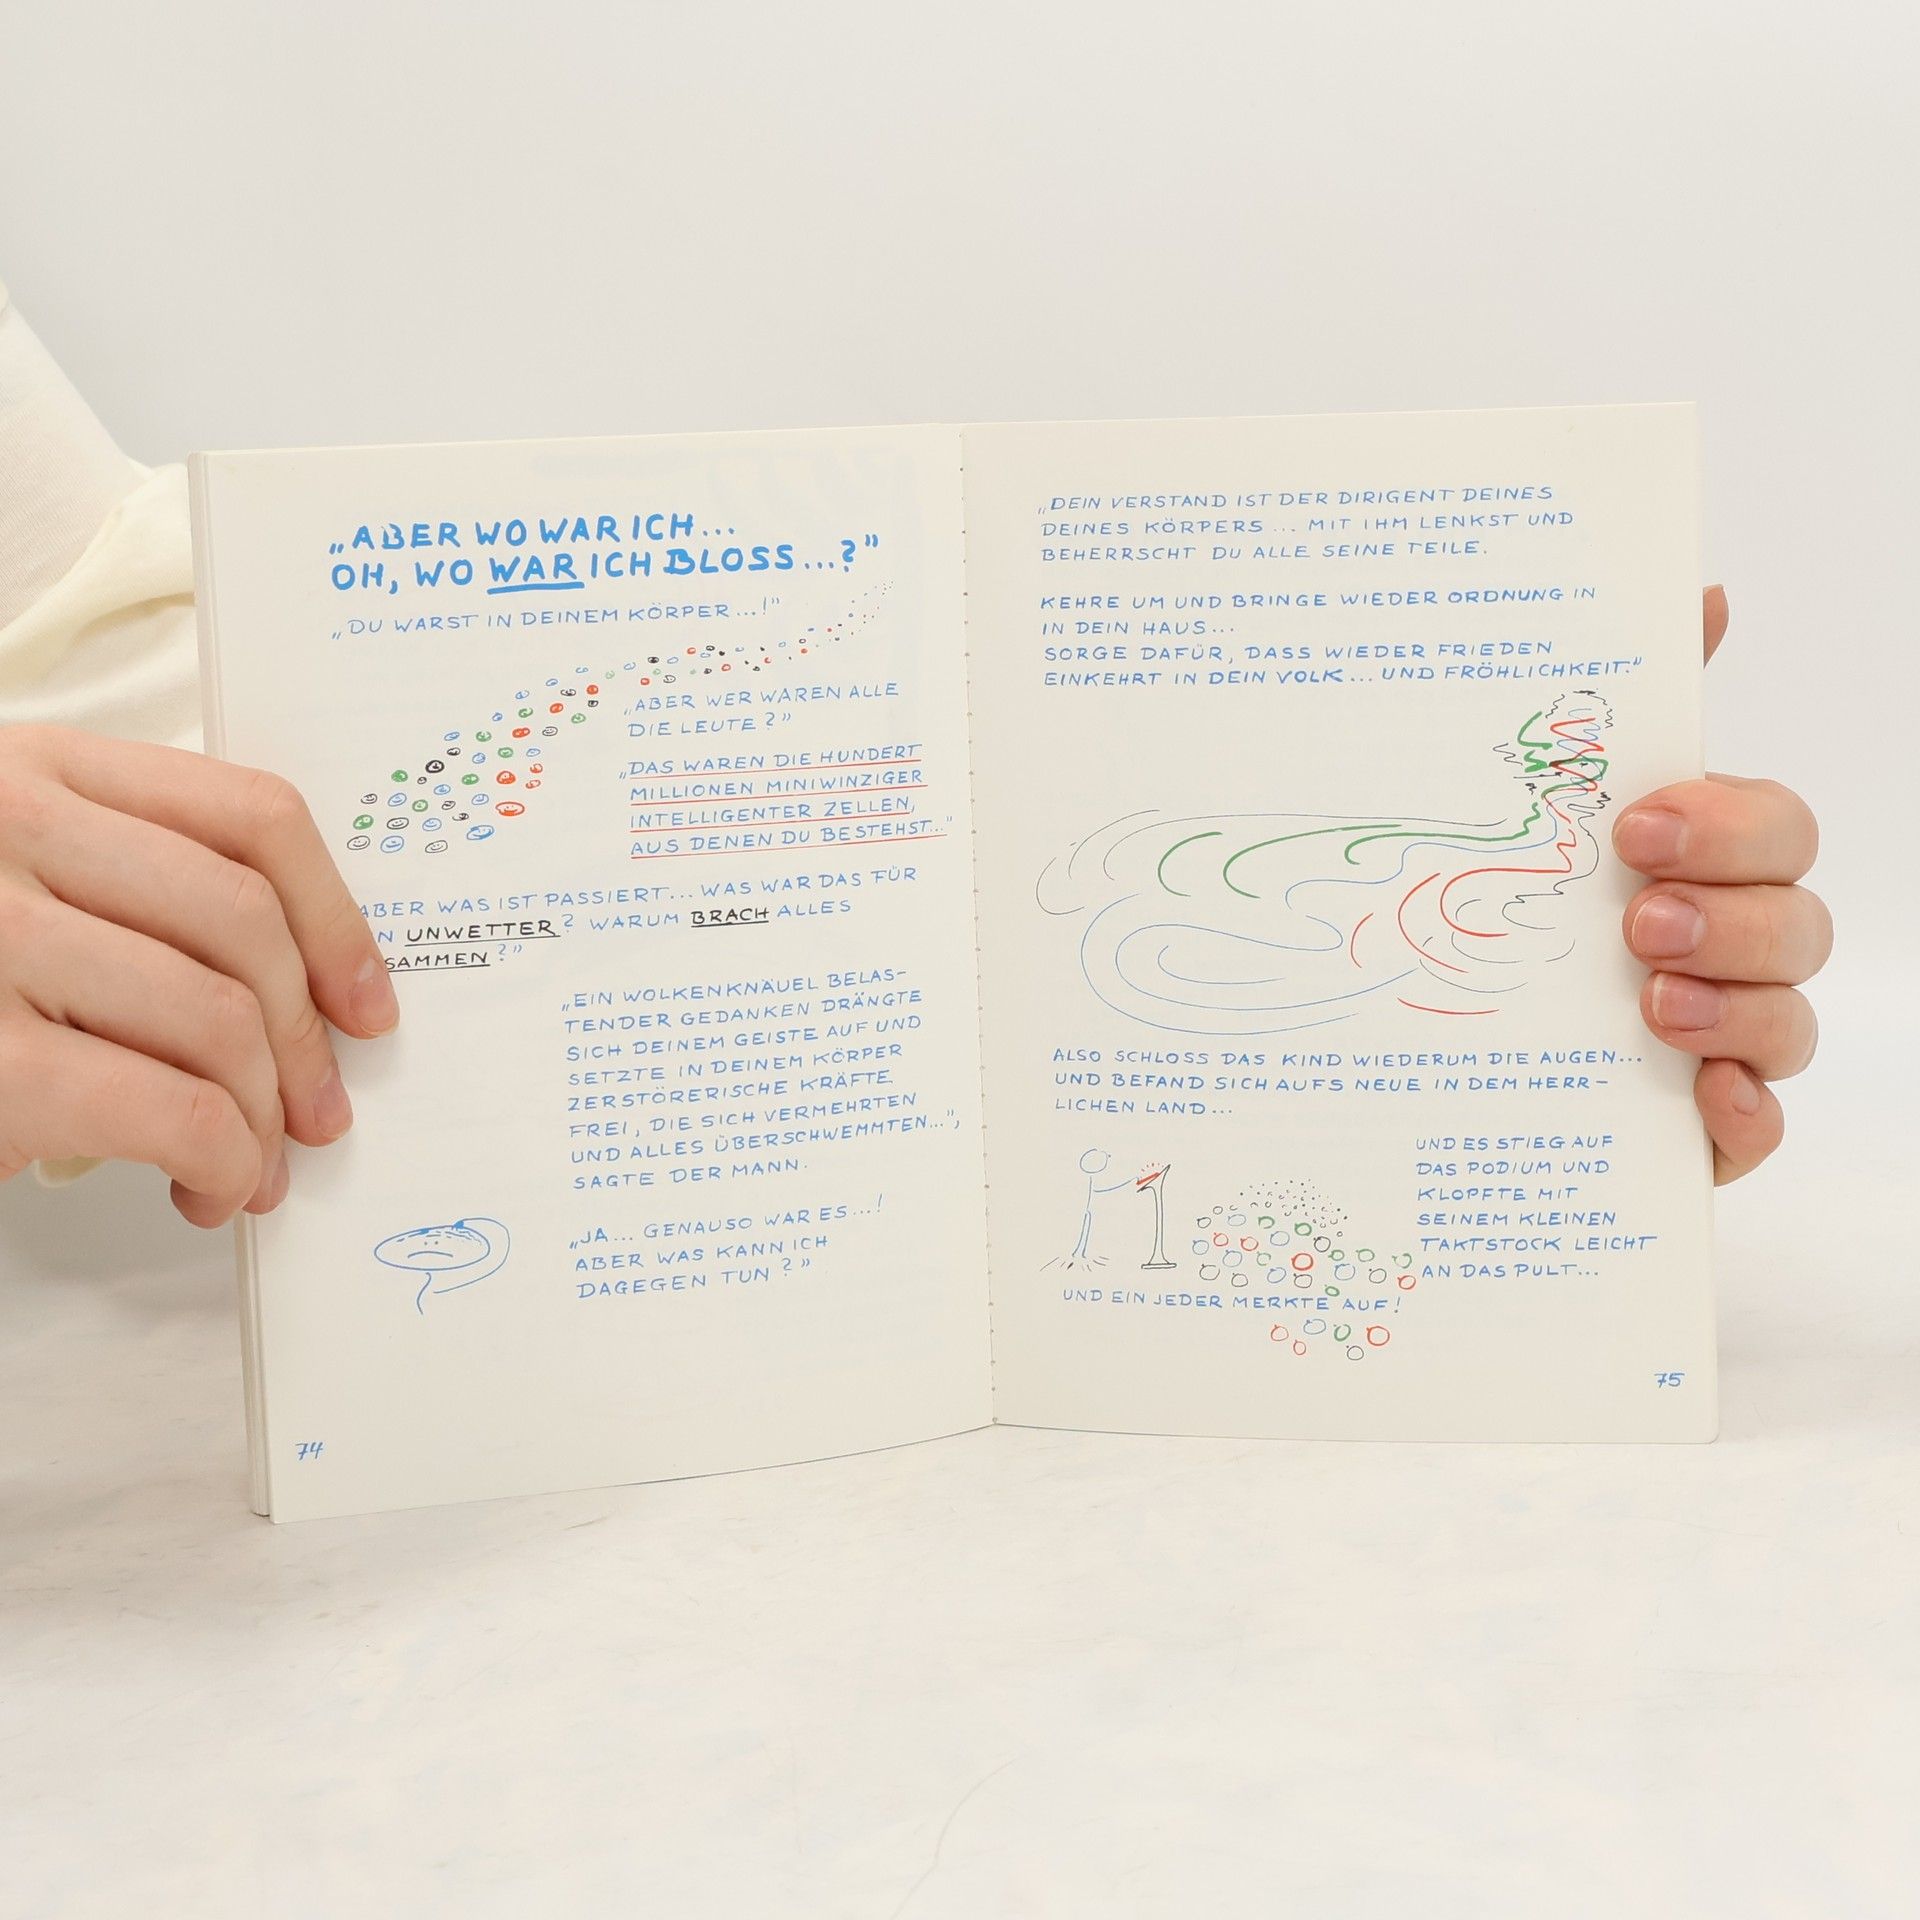 „ABER WO WAR ICH...
OH, WO WAR ICH BLOSS...?"
„DU WARST IN DEINEM KÖRPER...!"
„ABER WER WAREN ALLE
DIE LEUTE?"
„DAS WAREN DIE HUNDERT
MILLIONEN MINIWINZIGER
INTELLIGENTER ZELLEN,
AUS DENEN DU BESTEHST..."
ABER WAS IST PASSIERT... WAS WAR DAS FÜR
N UNWETTER? WARUM BRACH ALLES
SAMMEN?"
„EIN WOLKENKNÄUEL BELAS-
TENDER GEDANKEN DRÄNGTE
SICH DEINEM GEISTE AUF UND
SETZTE IN DEINEM KÖRPER
ZERSTÖRERISCHE KRÄFTE
FREI, DIE SICH VERMEHRTEN
UND ALLES ÜBERSCHWEMMTEN...",
SAGTE DER MANN.
„JA... GENAUSO WAR ES...!
ABER WAS KANN ICH
DAGEGEN TUN?"
74
„DEIN VERSTAND IST DER DIRIGENT DEINES
DEINES KÖRPERS... MIT IHM LENKST UND
BEHERRSCHT DU ALLE SEINE TEILE.
KEHRE UM UND BRINGE WIEDER ORDNUNG IN
IN DEIN HAUS...
SORGE DAFÜR, DASS WIEDER FRIEDEN
EINKEHRT IN DEIN VOLK... UND FRÖHLICHKEIT."
ALSO SCHLOSS DAS KIND WIEDERUM DIE AUGEN...
UND BEFAND SICH AUFS NEUE IN DEM HERR-
LICHEN LAND...
UND ES STIEG AUF
DAS PODIUM UND
KLOPFTE MIT
SEINEM KLEINEN
TAKTSTOCK LEICHT
AN DAS PULT...
UND EIN JEDER MERKTE AUF!
75